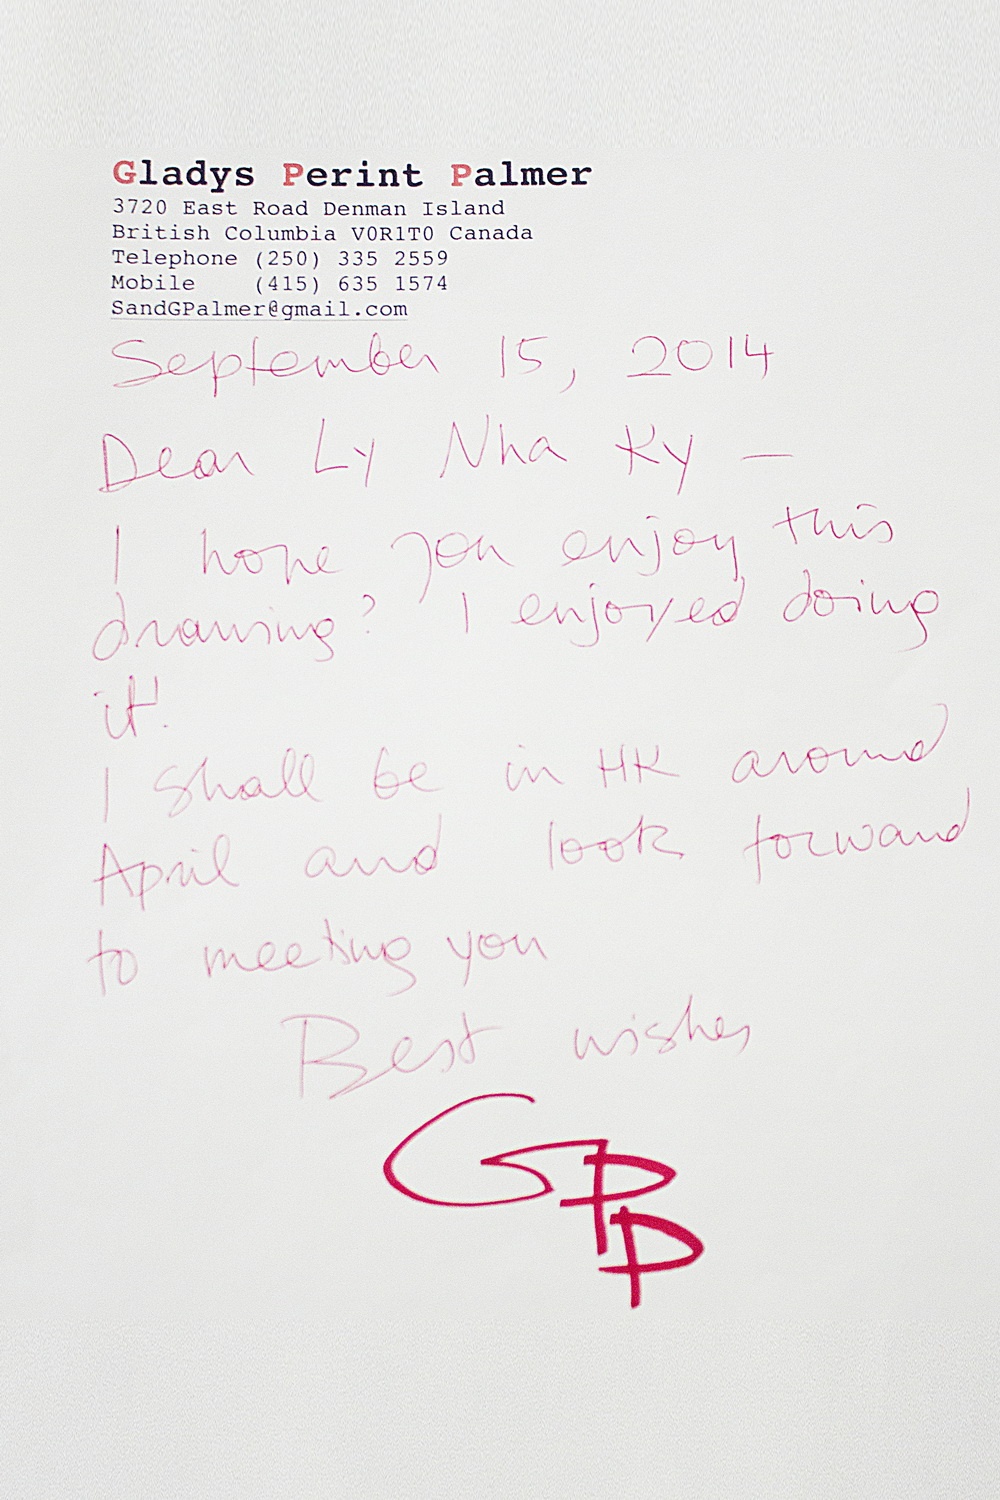 Gladys Perint Palmer
3720 East Road Denman Island
British Columbia V0R1T0 Canada
Telephone (250) 335 2559
Mobile (415) 635 1574
SandGPalmer@gmail.com
September 15, 2014
Dear Ly Nha Ky —
I hope you enjoy this
drawing? I enjoyed doing
it!
I shall be in HK around
April and look forward
to meeting you
Best wishes
GPP